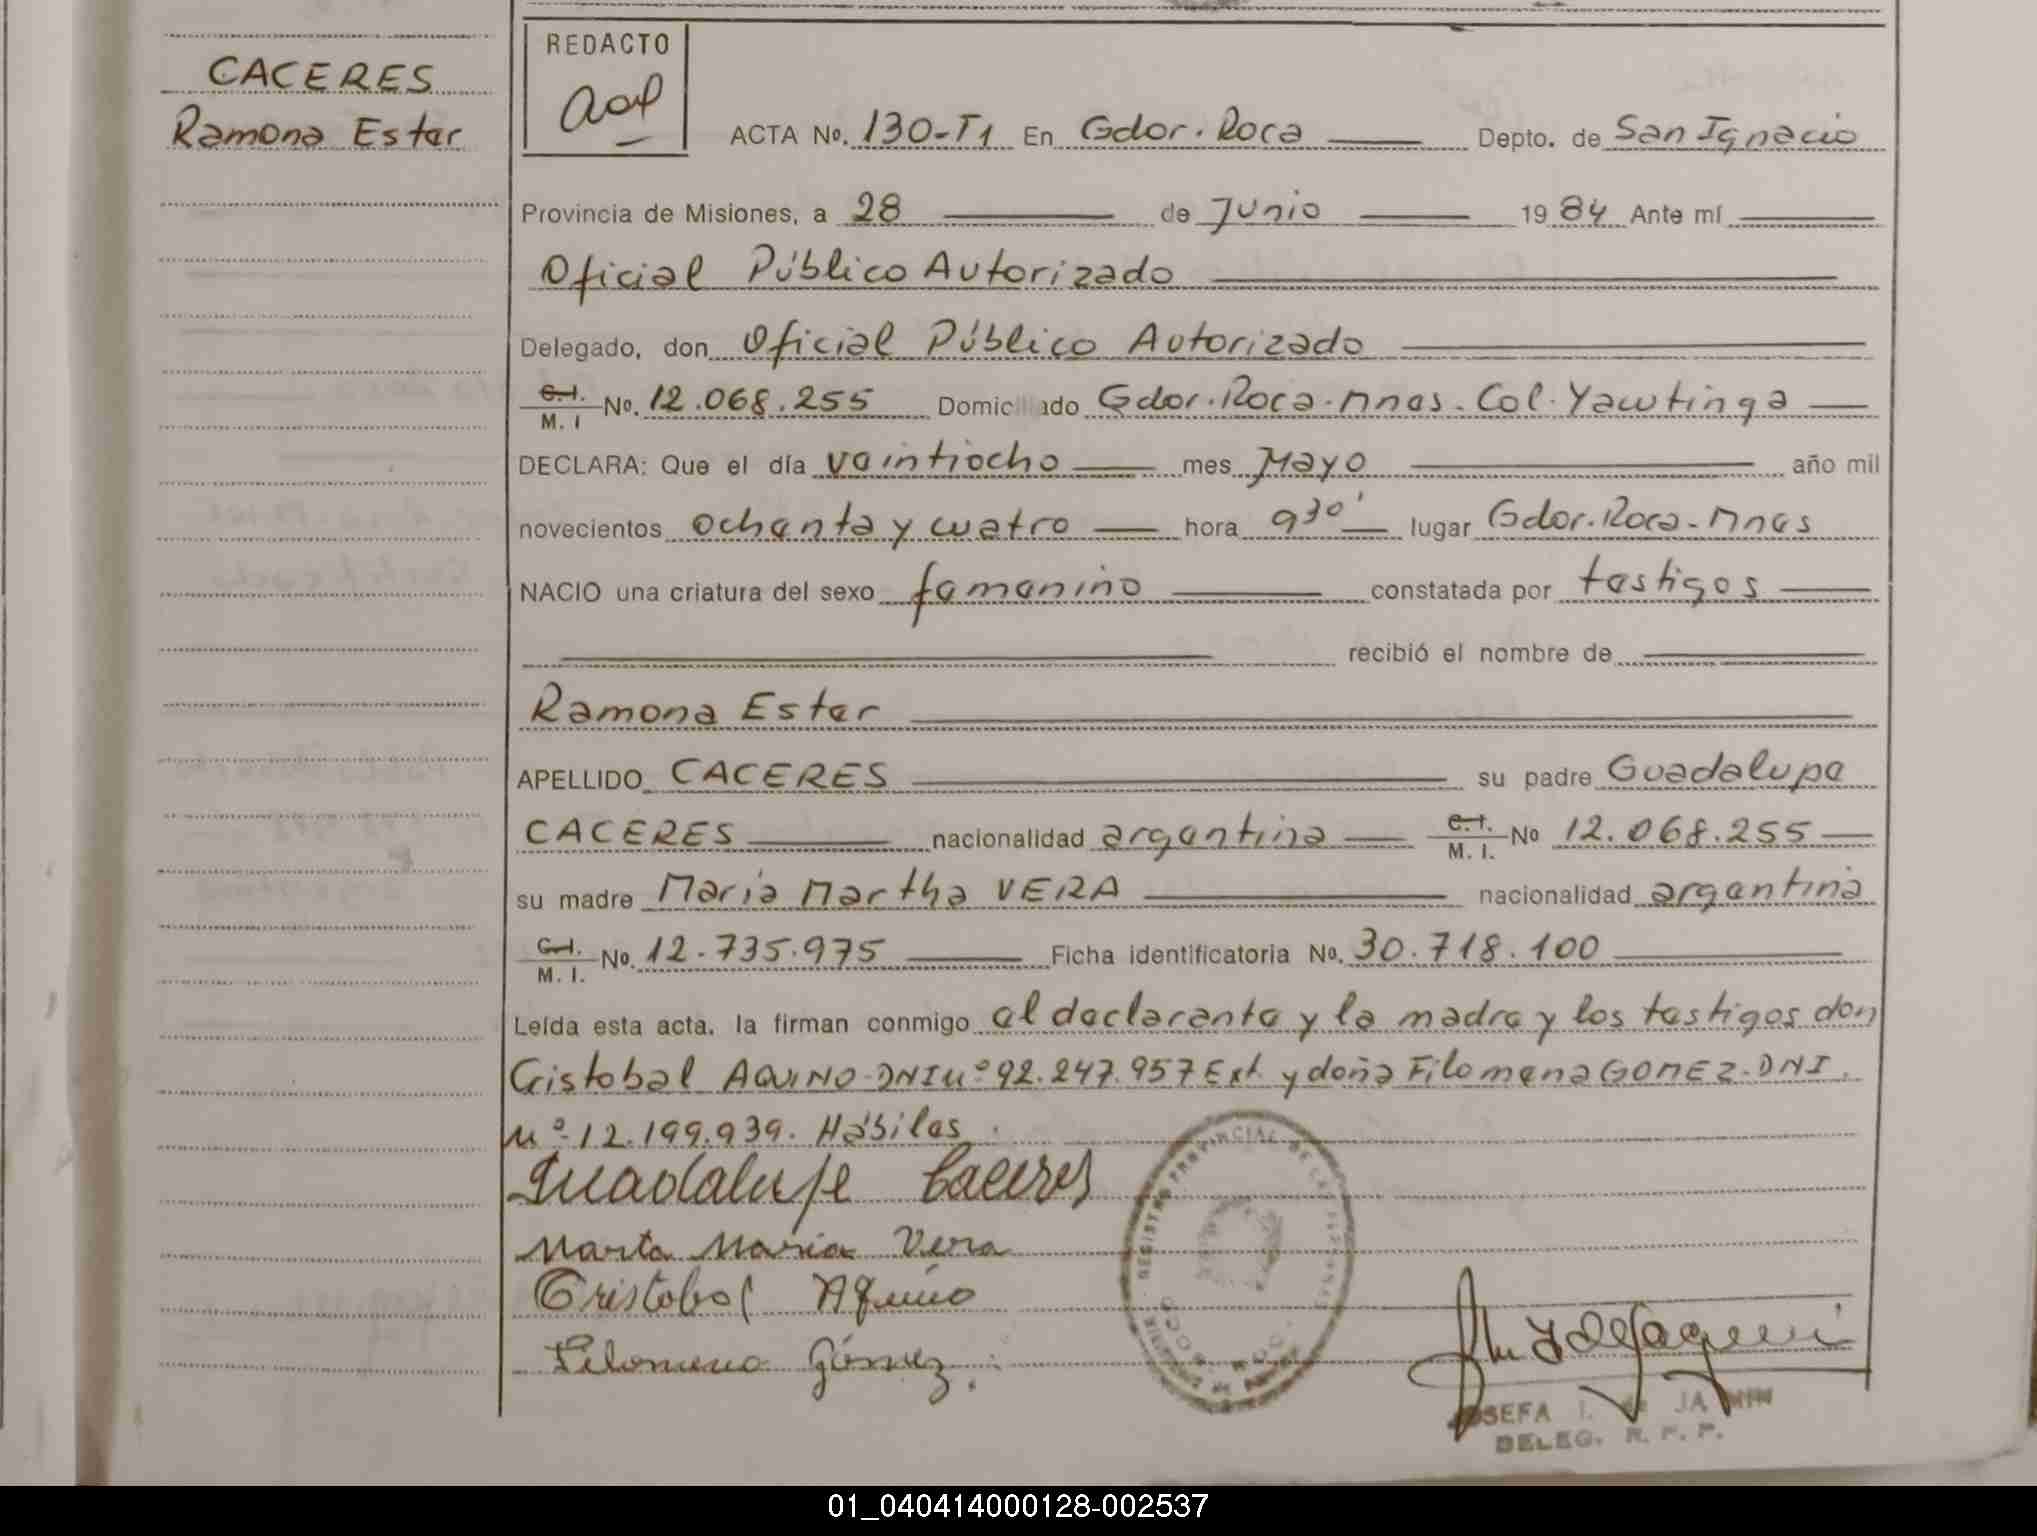 CACERES
Ramona Ester
REDACTO
ACTA No. 130-T1 En Gdor. Roca Depto. de San Ignacio
Provincia de Misiones, a 28 de Junio 1984 Ante mí
Oficial Público Autorizado
Delegado, don Oficial Público Autorizado
C.I. M. I No. 12.068.255 Domiciliado Gdor. Roca. Mnes. Col. Yawtinga
DECLARA: Que el día veintiocho mes Mayo año mil
novecientos ochenta y cuatro hora 9 30' lugar Gdor. Roca - Mnes
NACIO una criatura del sexo femenino constatada por testigos
recibió el nombre de
Ramona Ester
APELLIDO CACERES su padre Guadalupe
CACERES nacionalidad argentina C.I. M. I. No 12.068.255
su madre Maria Martha VERA nacionalidad argentina
C.I. M. I. No. 12.735.975 Ficha identificatoria No. 30.718.100
Leída esta acta, la firman conmigo el declarante y la madre y los testigos don
Cristobal AQUINO DNI Nº 92.247.957 Ext. y doña Filomena GOMEZ. DNI.
Nº 12.199.939. Hábiles.
Guadalupe Caceres
Marta Maria Vera
Cristobal Aquino
Filomena Gómez.
REGISTRO PROVINCIAL DE LAS PERSONAS
JOSEFA I. de
DELEG. R. P. P.
01_040414000128-002537